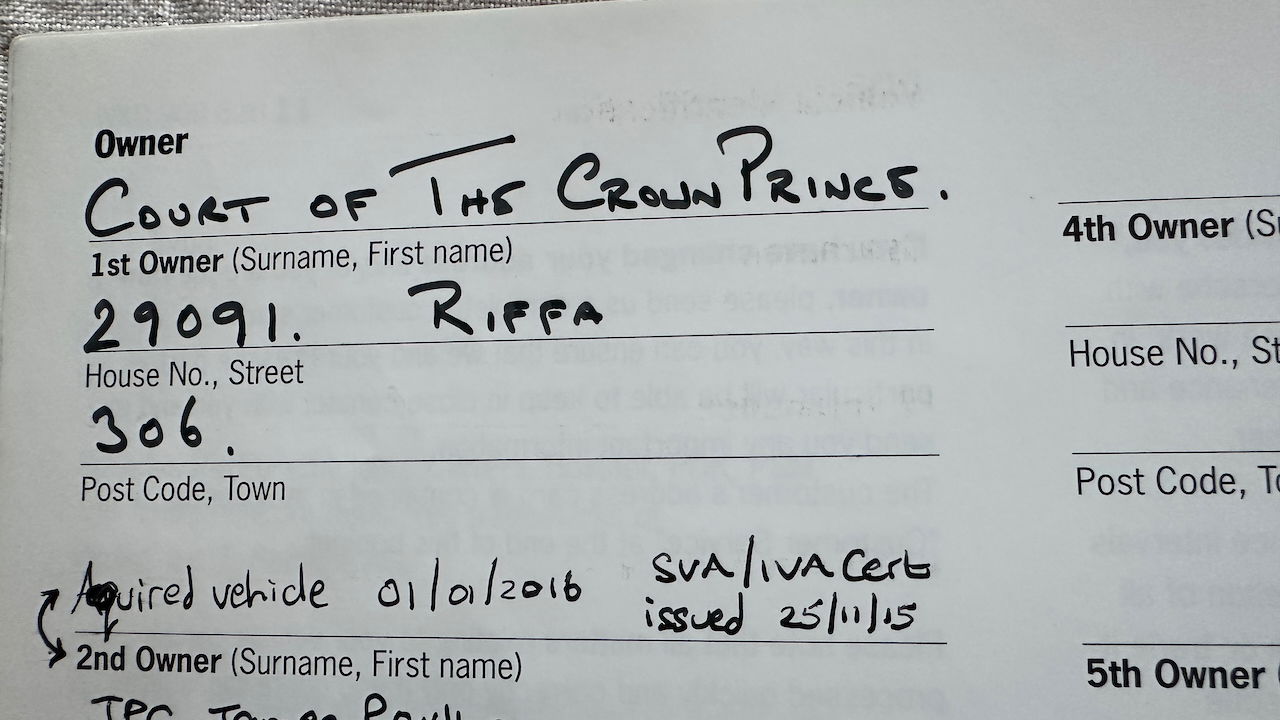 Owner
COURT OF THE CROWN PRINCE.
1st Owner (Surname, First name)
29091. RIFFA
House No., Street
306.
Post Code, Town
Aquired vehicle 01/01/2016
SVA/IVA Cert
issued 25/11/15
2nd Owner (Surname, First name)
4th Owner (Su
House No., St
Post Code, To
5th Owner (